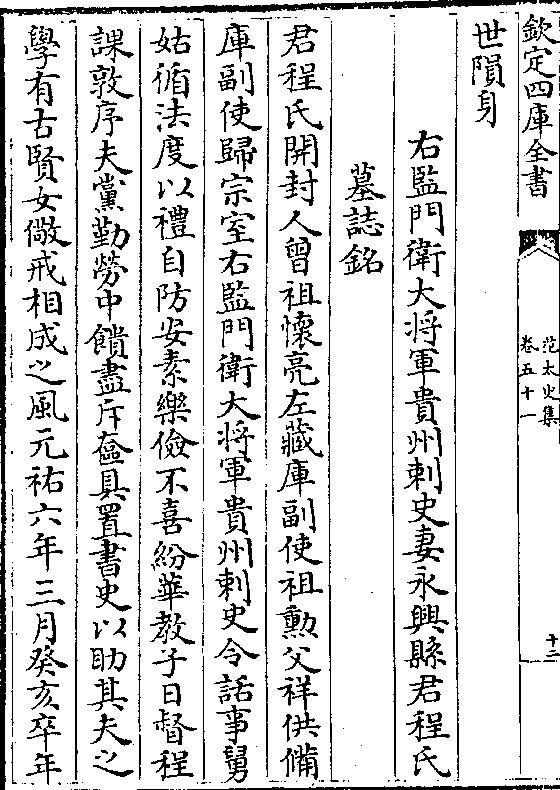 欽定四庫全書
范太史集
卷五十一
十二
世隕身
右監門衛大將軍貴州刺史妻永興縣君程氏
墓誌銘
君程氏開封人曾祖懷亮左藏庫副使祖勲父祥供備
庫副使歸宗室右監門衛大將軍貴州刺史令話事舅
姑循法度以禮自防安素樂儉不喜紛華教子日督程
課敦序夫黨勤勞中饋盡斥奩具置書史以助其夫之
學有古賢女儆戒相成之風元祐六年三月癸亥卒年